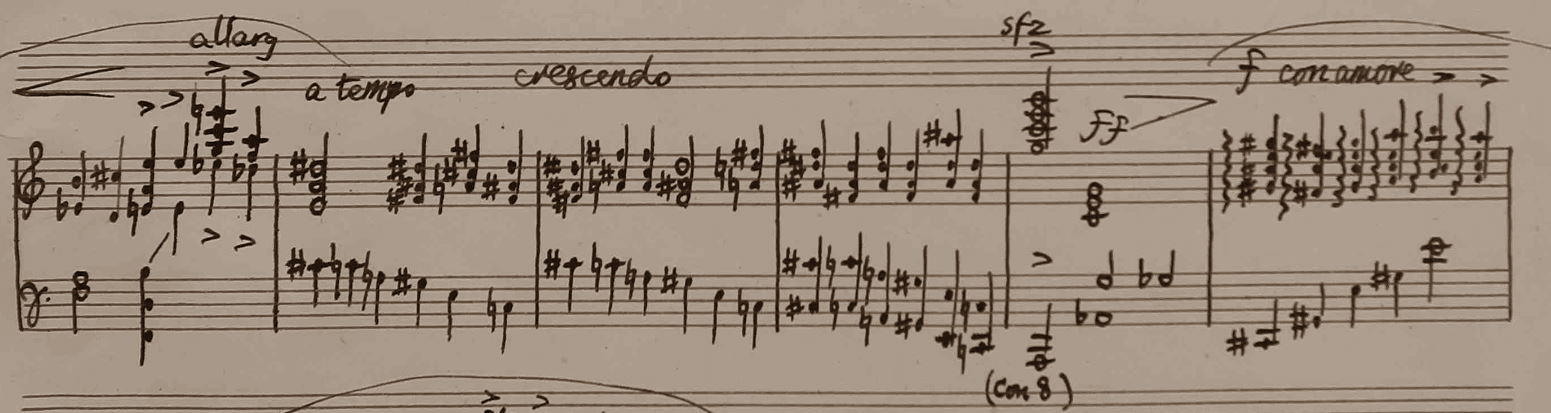 allarg
a tempo
crescendo
sfz
ff
f con amore
(con 8)